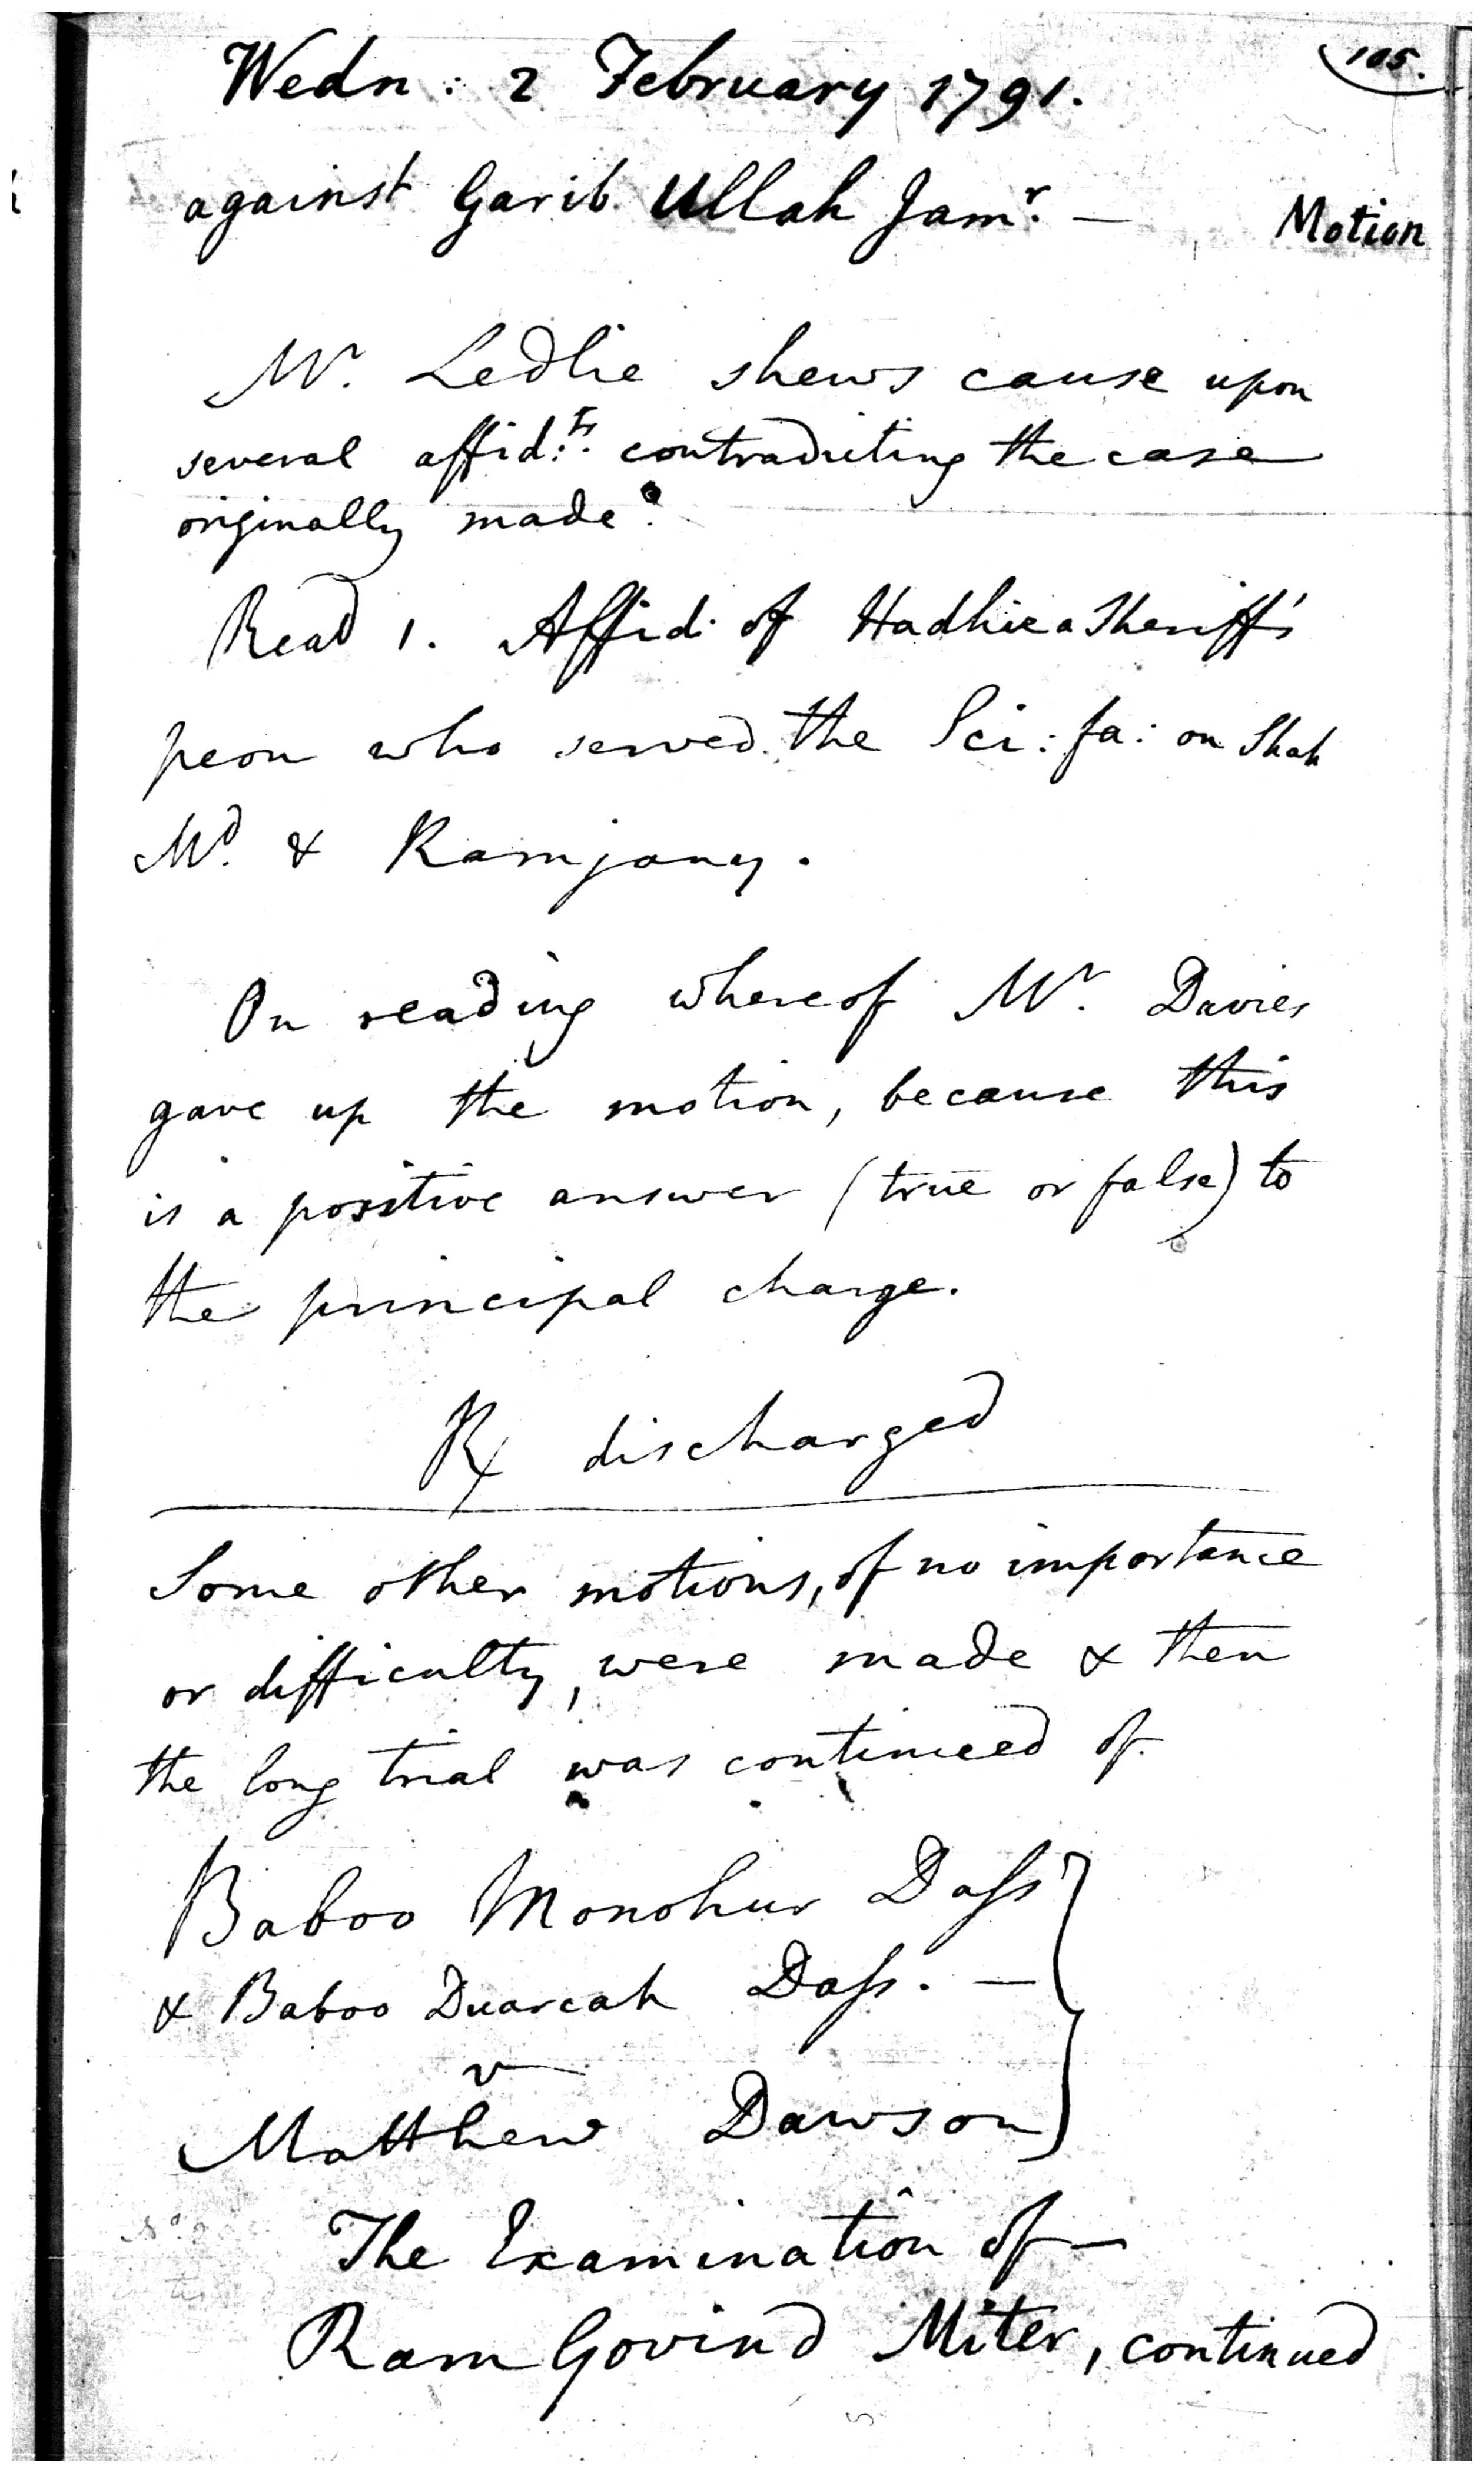 105.
Wedn: 2 February 1791.
against Garib Ullah Jamr. —
Motion
Mr. Ledlie shews cause upon
several affid:ts. contradicting the case
originally made.
Read 1. Affid: of Hadhie a Sheriff's
peon who served the Sci: fa: on Shah
Md. & Ramjany.
On reading whereof Mr. Davies
gave up the motion, because this
is a positive answer (true or false) to
the principal charge.
R discharged
Some other motions, of no importance
or difficulty, were made & then
the long trial was continued of
Baboo Monohur Dass
& Baboo Duarcah Dass. —
v
Matthew Dawson
The Examination of —
Ram Govind Miter, continued